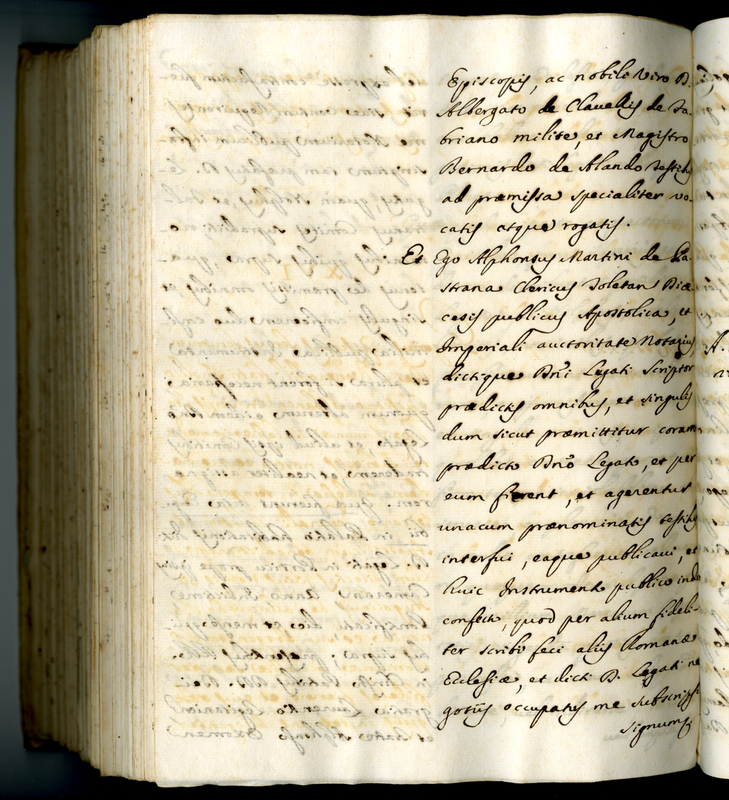 Episcopis, ac nobile Viro D.
Albergato de Clavellis de Fa-
briano milite, et Magistro
Bernardo de Alando testibus
ad præmissa specialiter vo-
catis atque rogatis.
Et Ego Alphonsus Martini de Pa-
strana Clericus Toletan Diæ-
cesis publicus Apostolica, et
Imperiali auctoritate Notarius
dictique Dñi Legati Scriptor
prædictis omnibus, et singulis
dum sicut præmittitur coram
prædicto Dño Legato, et per
eum fierent, et agerentur
unacum prænominatis testibus
interfui, eaque publicavi, et
huic Instrumento publico inde
confecto, quod per alium fideli-
ter scribi feci aliis Romanæ
Ecclesiæ, et dicti D. Legati ne
gotiis occupatus me subscripsi
signumq